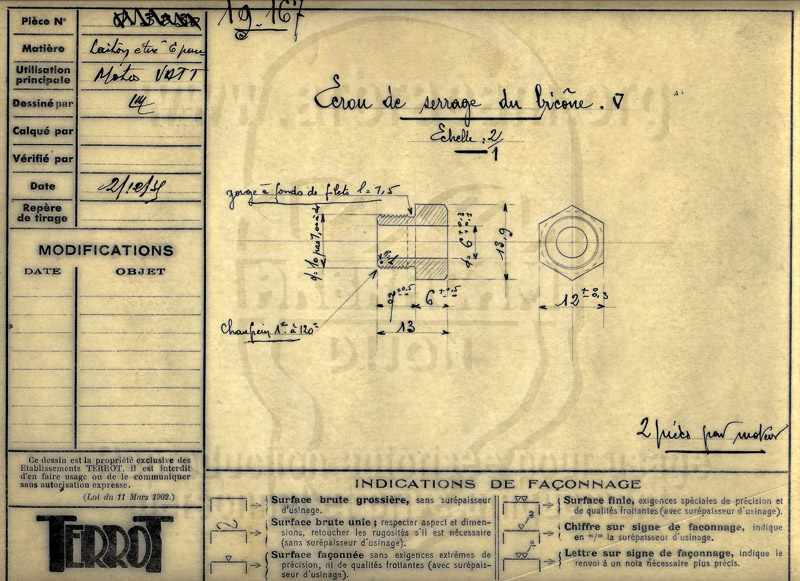 Pièce N°
19.167
Matière
Laiton étiré 6 pans
Utilisation principale
Moto VATT
Dessiné par
Calqué par
Vérifié par
Date
2/10/35
Repère de tirage
MODIFICATIONS
DATE OBJET
Ecrou de serrage du bicône. ▽
Echelle : 2/1
gorge à fonds de filets l = 1,5
13,9
12
6
13
Chanfrein 1 à 120°
2 pièces par moteur
Ce dessin est la propriété exclusive des
Etablissements TERROT, il est interdit
d'en faire usage ou de le communiquer
sans autorisation expresse.
(Loi du 11 Mars 1902.)
TERROT
INDICATIONS DE FAÇONNAGE
Surface brute grossière, sans surépaisseur
d'usinage.
Surface brute unie ; respecter aspect et dimen-
sions, retoucher les rugosités s'il est nécessaire
(sans surépaisseur d'usinage).
Surface façonnée sans exigences extrêmes de
précision, ni de qualités frottantes (avec surépais-
seur d'usinage).
Surface finie, exigences spéciales de précision et
de qualités frottantes (avec surépaisseur d'usinage).
Chiffre sur signe de faconnage, indique
en "/" la surépaisseur d'usinage.
Lettre sur signe de façonnage, indique le
renvoi à un nota nécessaire plus précis.